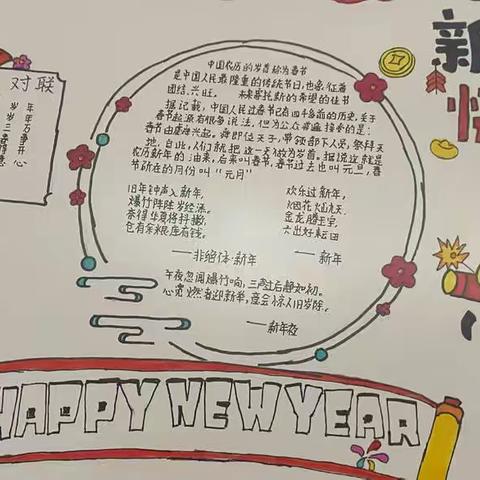 对联
年年万事开心
岁岁三春得意
新
快
中国农历的岁首称为春节
是中国人民最隆重的传统节日,也象征着
团结、兴旺。寄托新的希望的佳节
据记载,中国人民过春节已有四千多年的历史,关于
春节起源有很多说法,但为公众普遍接受的是:
春节由虞舜兴起。舜即位天子,带领部下人员,祭拜天
地,自此,人们就把这一天做为岁首。据说这就是
农历新年的由来,后来叫春节,春节过去也叫元旦,春
节所在的月份叫“元月”
旧年钟声入新年,
爆竹阵阵岁经添。
包有余粮库有钱。
——新年
欢乐过新年,
烟花灿烂天。
金龙腾玉宇,
六出好耘田
——新年
午夜忽闻爆竹响,三鸣过后静如初。
——新年夜
HAPPY NEW YEAR